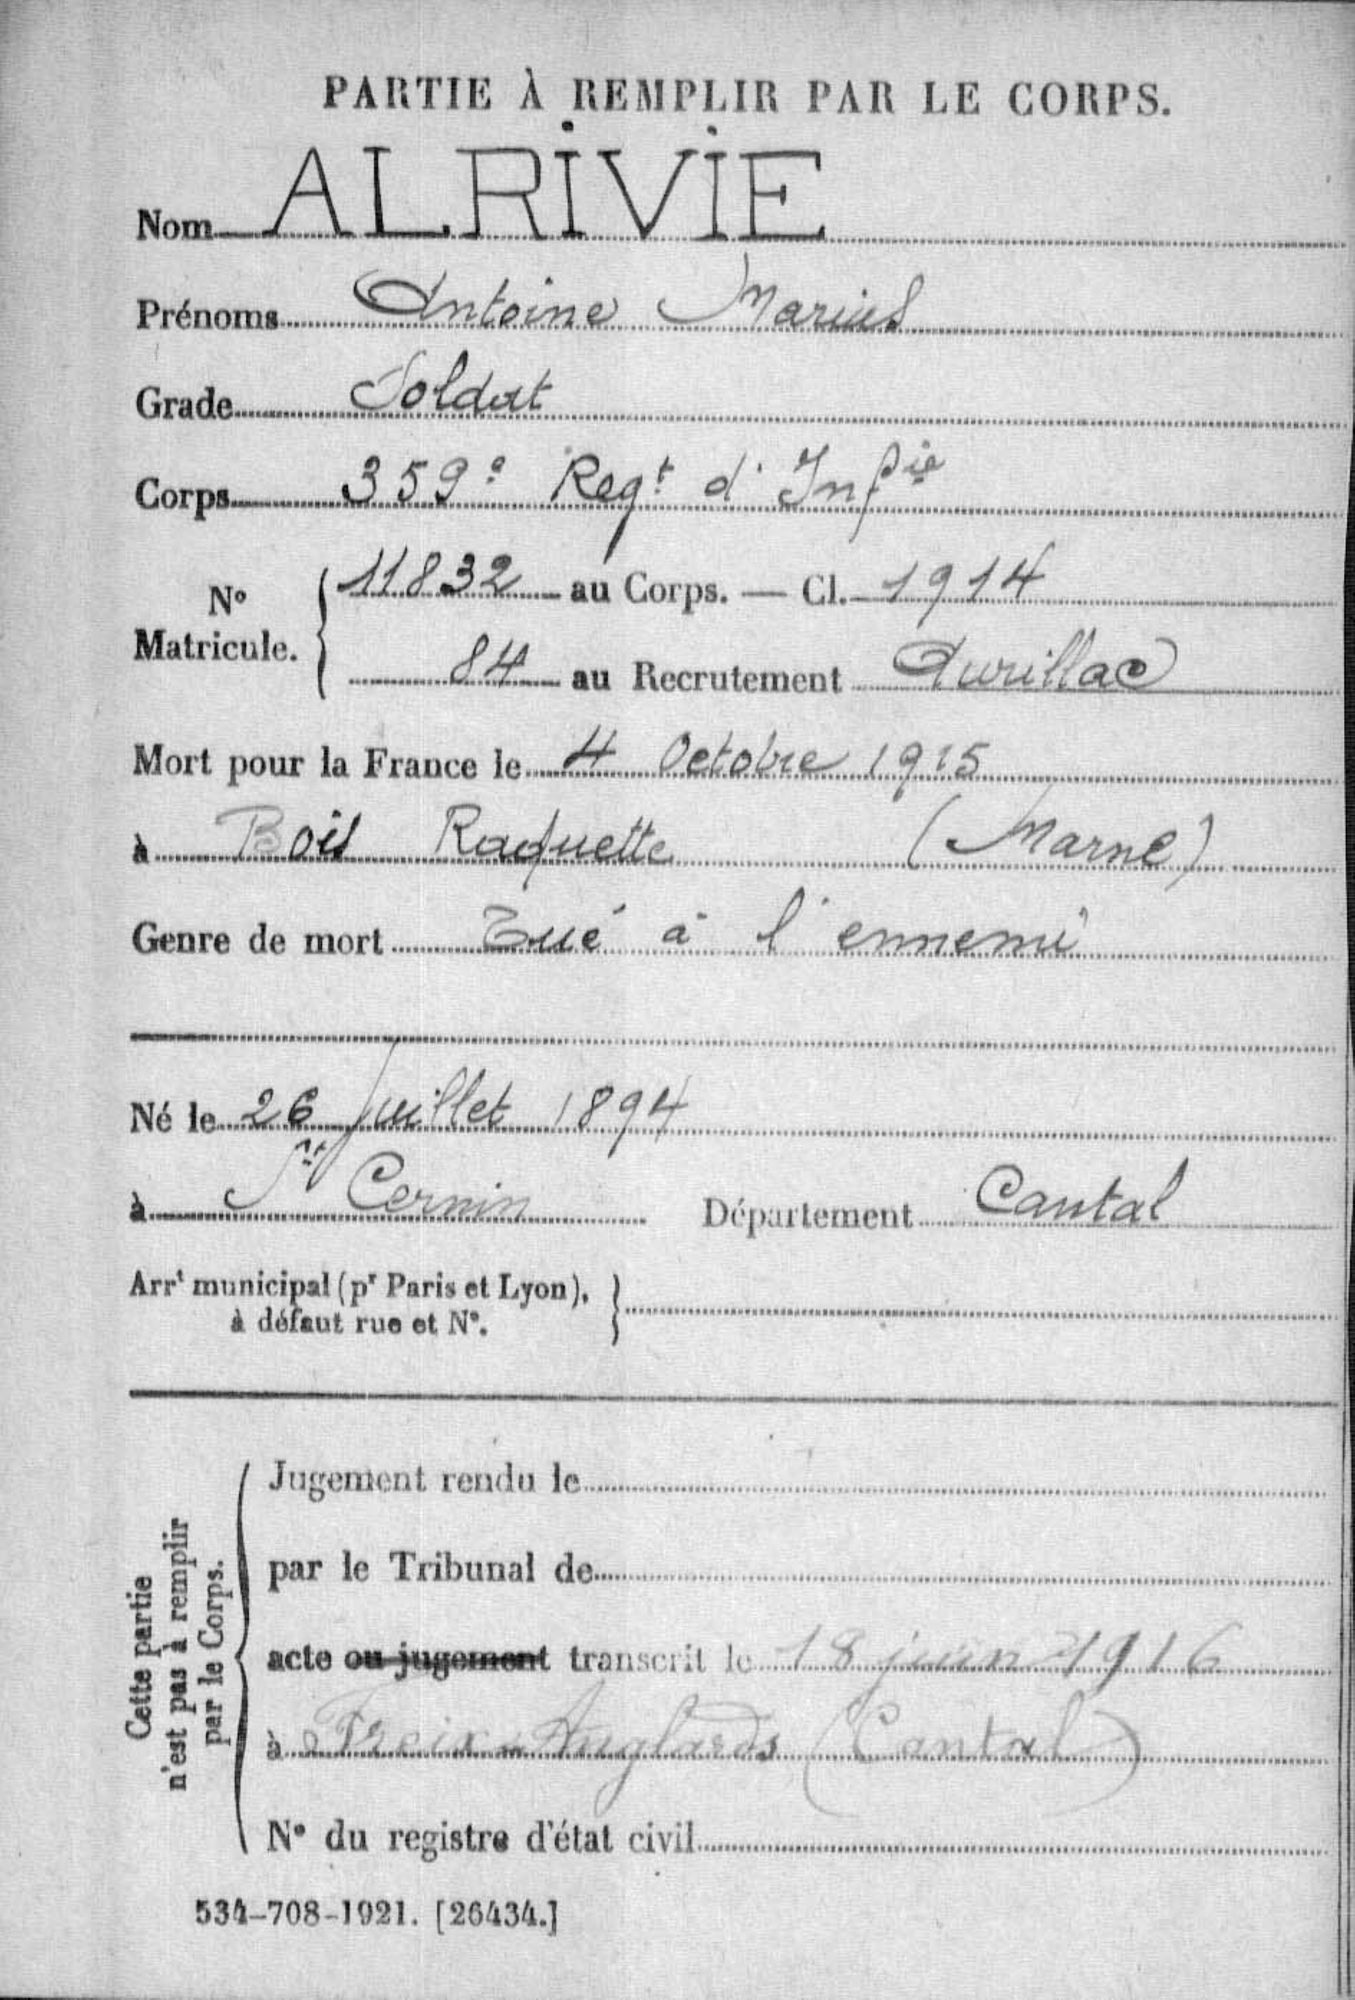 PARTIE À REMPLIR PAR LE CORPS.
Nom ALRIVIE
Prénoms Antoine Marius
Grade Soldat
Corps 359e Regt d'Infie
N° Matricule. 11832 au Corps. — Cl. 1914
84 au Recrutement Aurillac
Mort pour la France le 4 Octobre 1915
à Bois Raquette (Marne)
Genre de mort Tué à l'ennemi
Né le 26 Juillet 1894
à St Cernin Département Cantal
Arrt municipal (pr Paris et Lyon),
à défaut rue et N°.
Cette partie
n'est pas à remplir
par le Corps.
Jugement rendu le
par le Tribunal de
acte ou jugement transcrit le 18 juin 1916
à Freix-Anglards (Cantal)
N° du registre d'état civil
534-708-1921. [26434.]